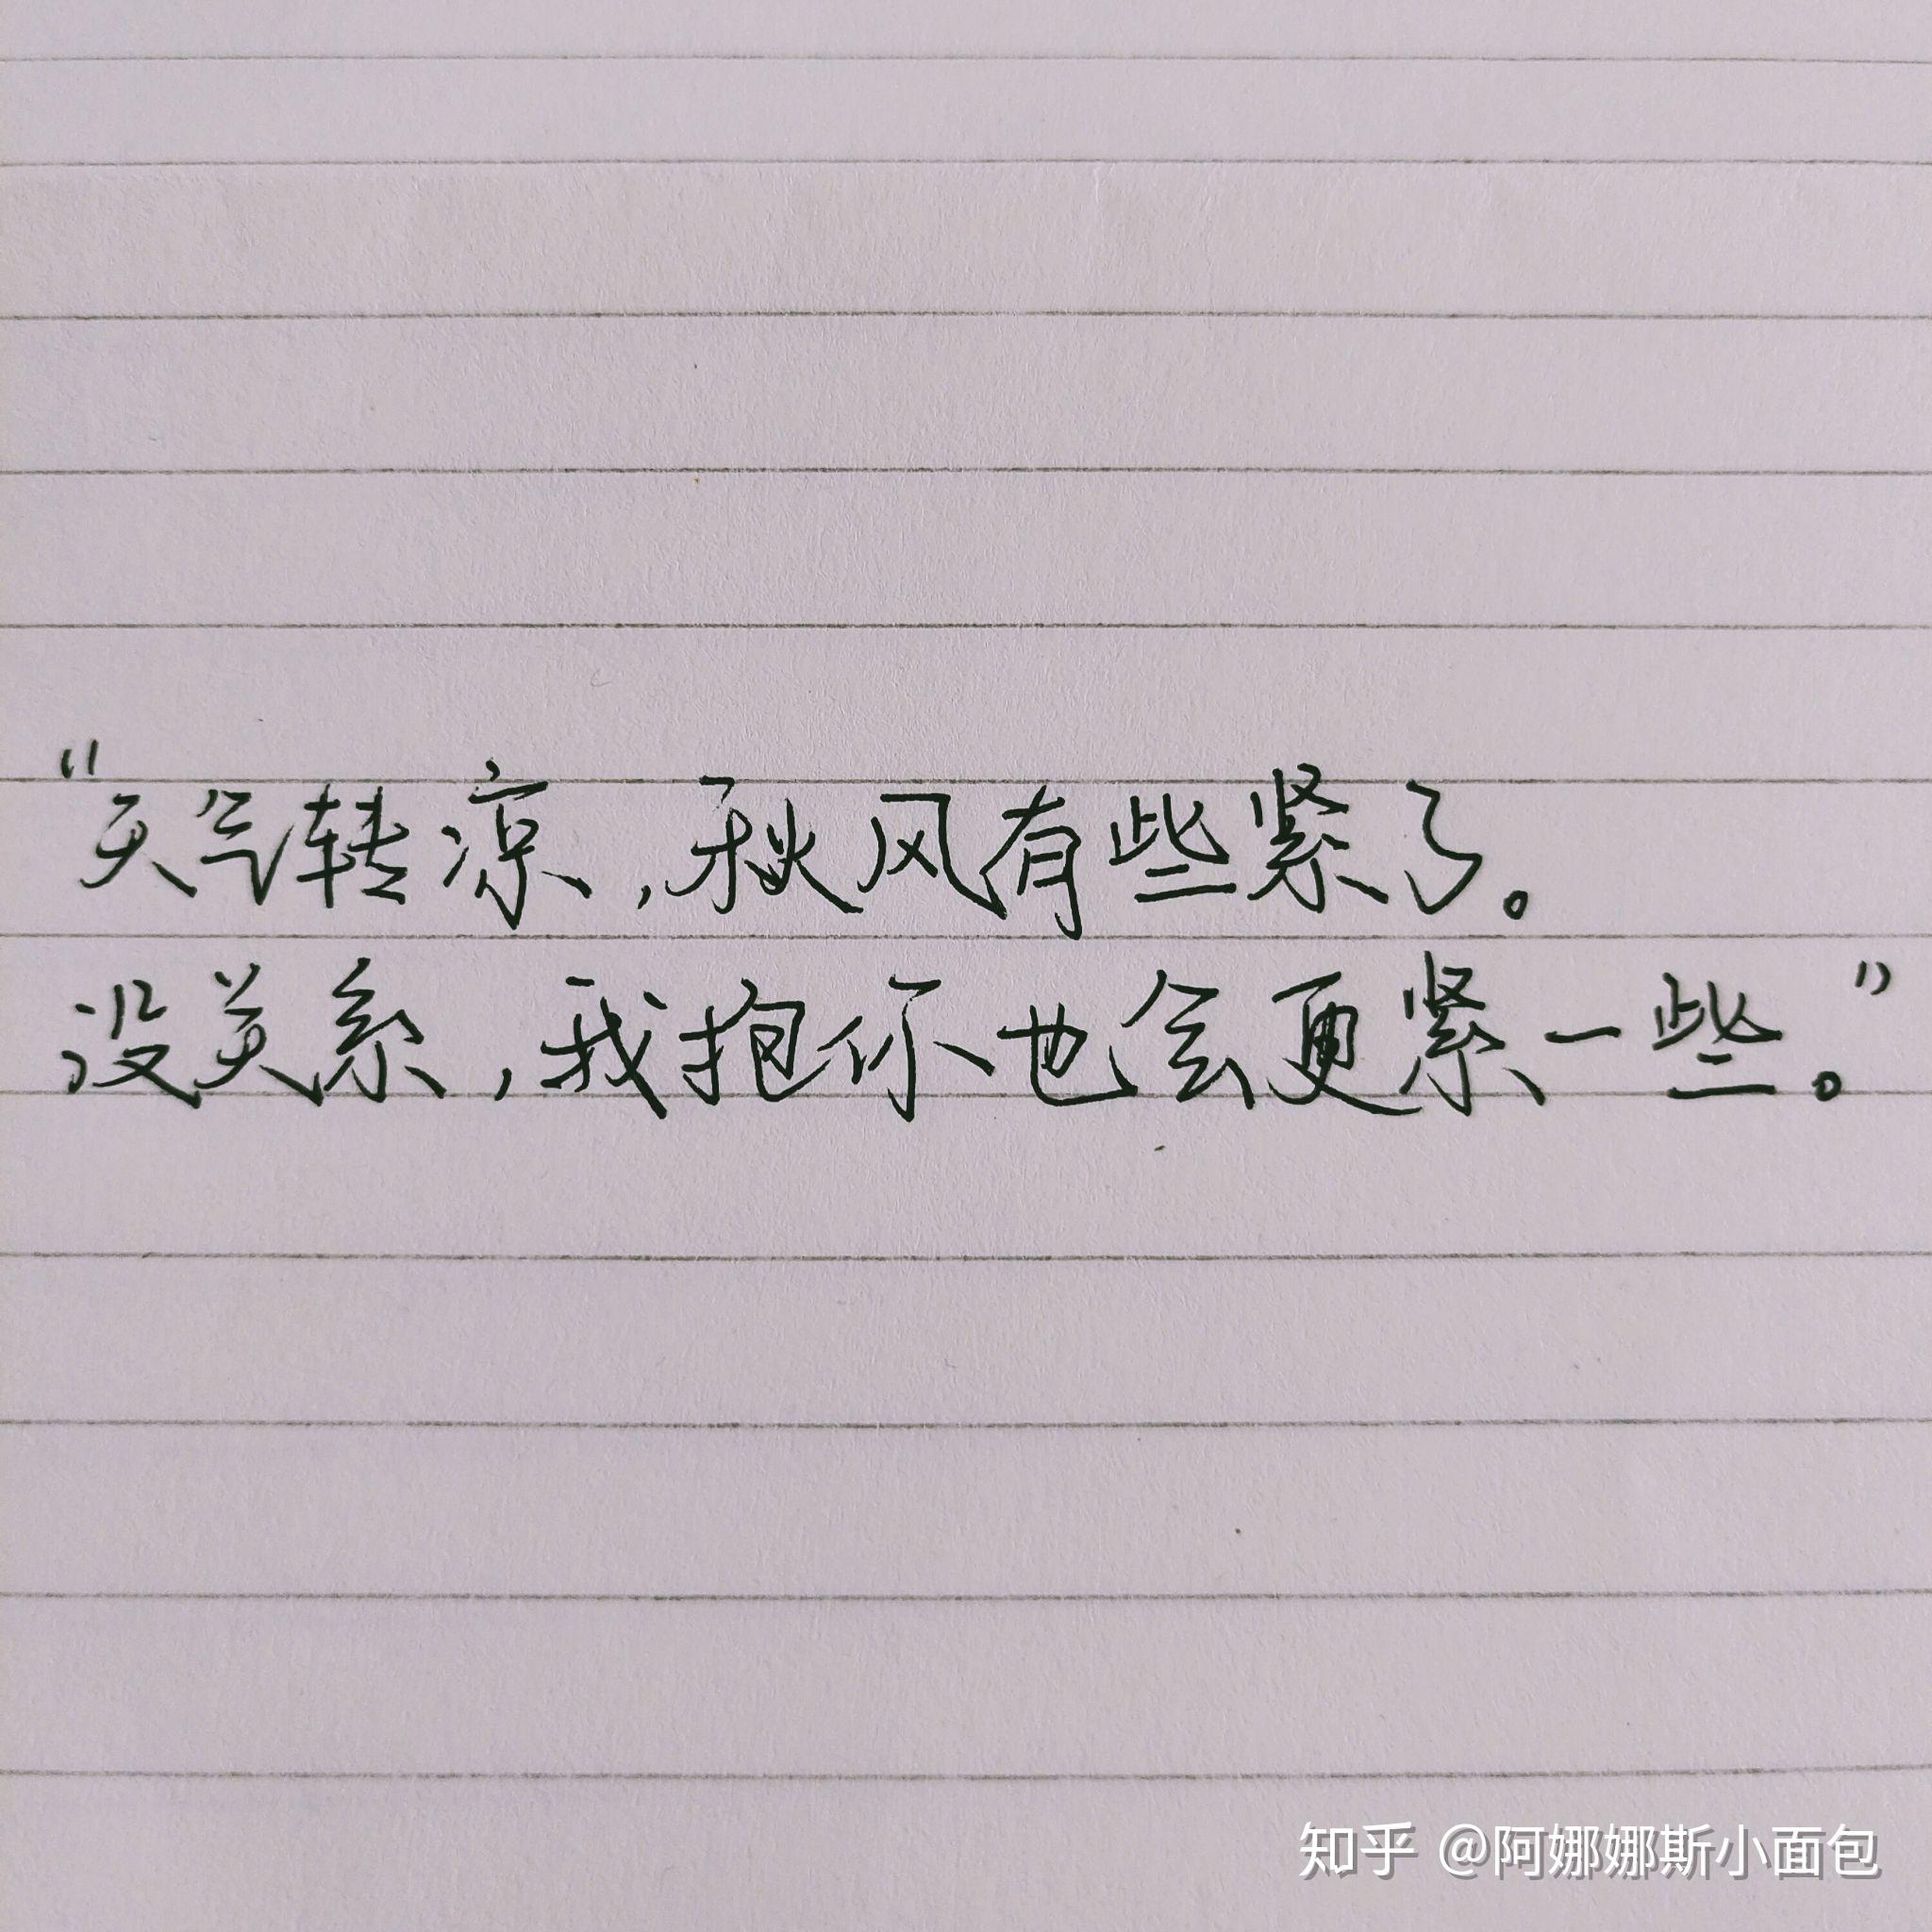 “天气转凉，秋风有些紧了。
没关系，我抱你也会更紧一些。”
知乎 @阿娜娜斯小面包